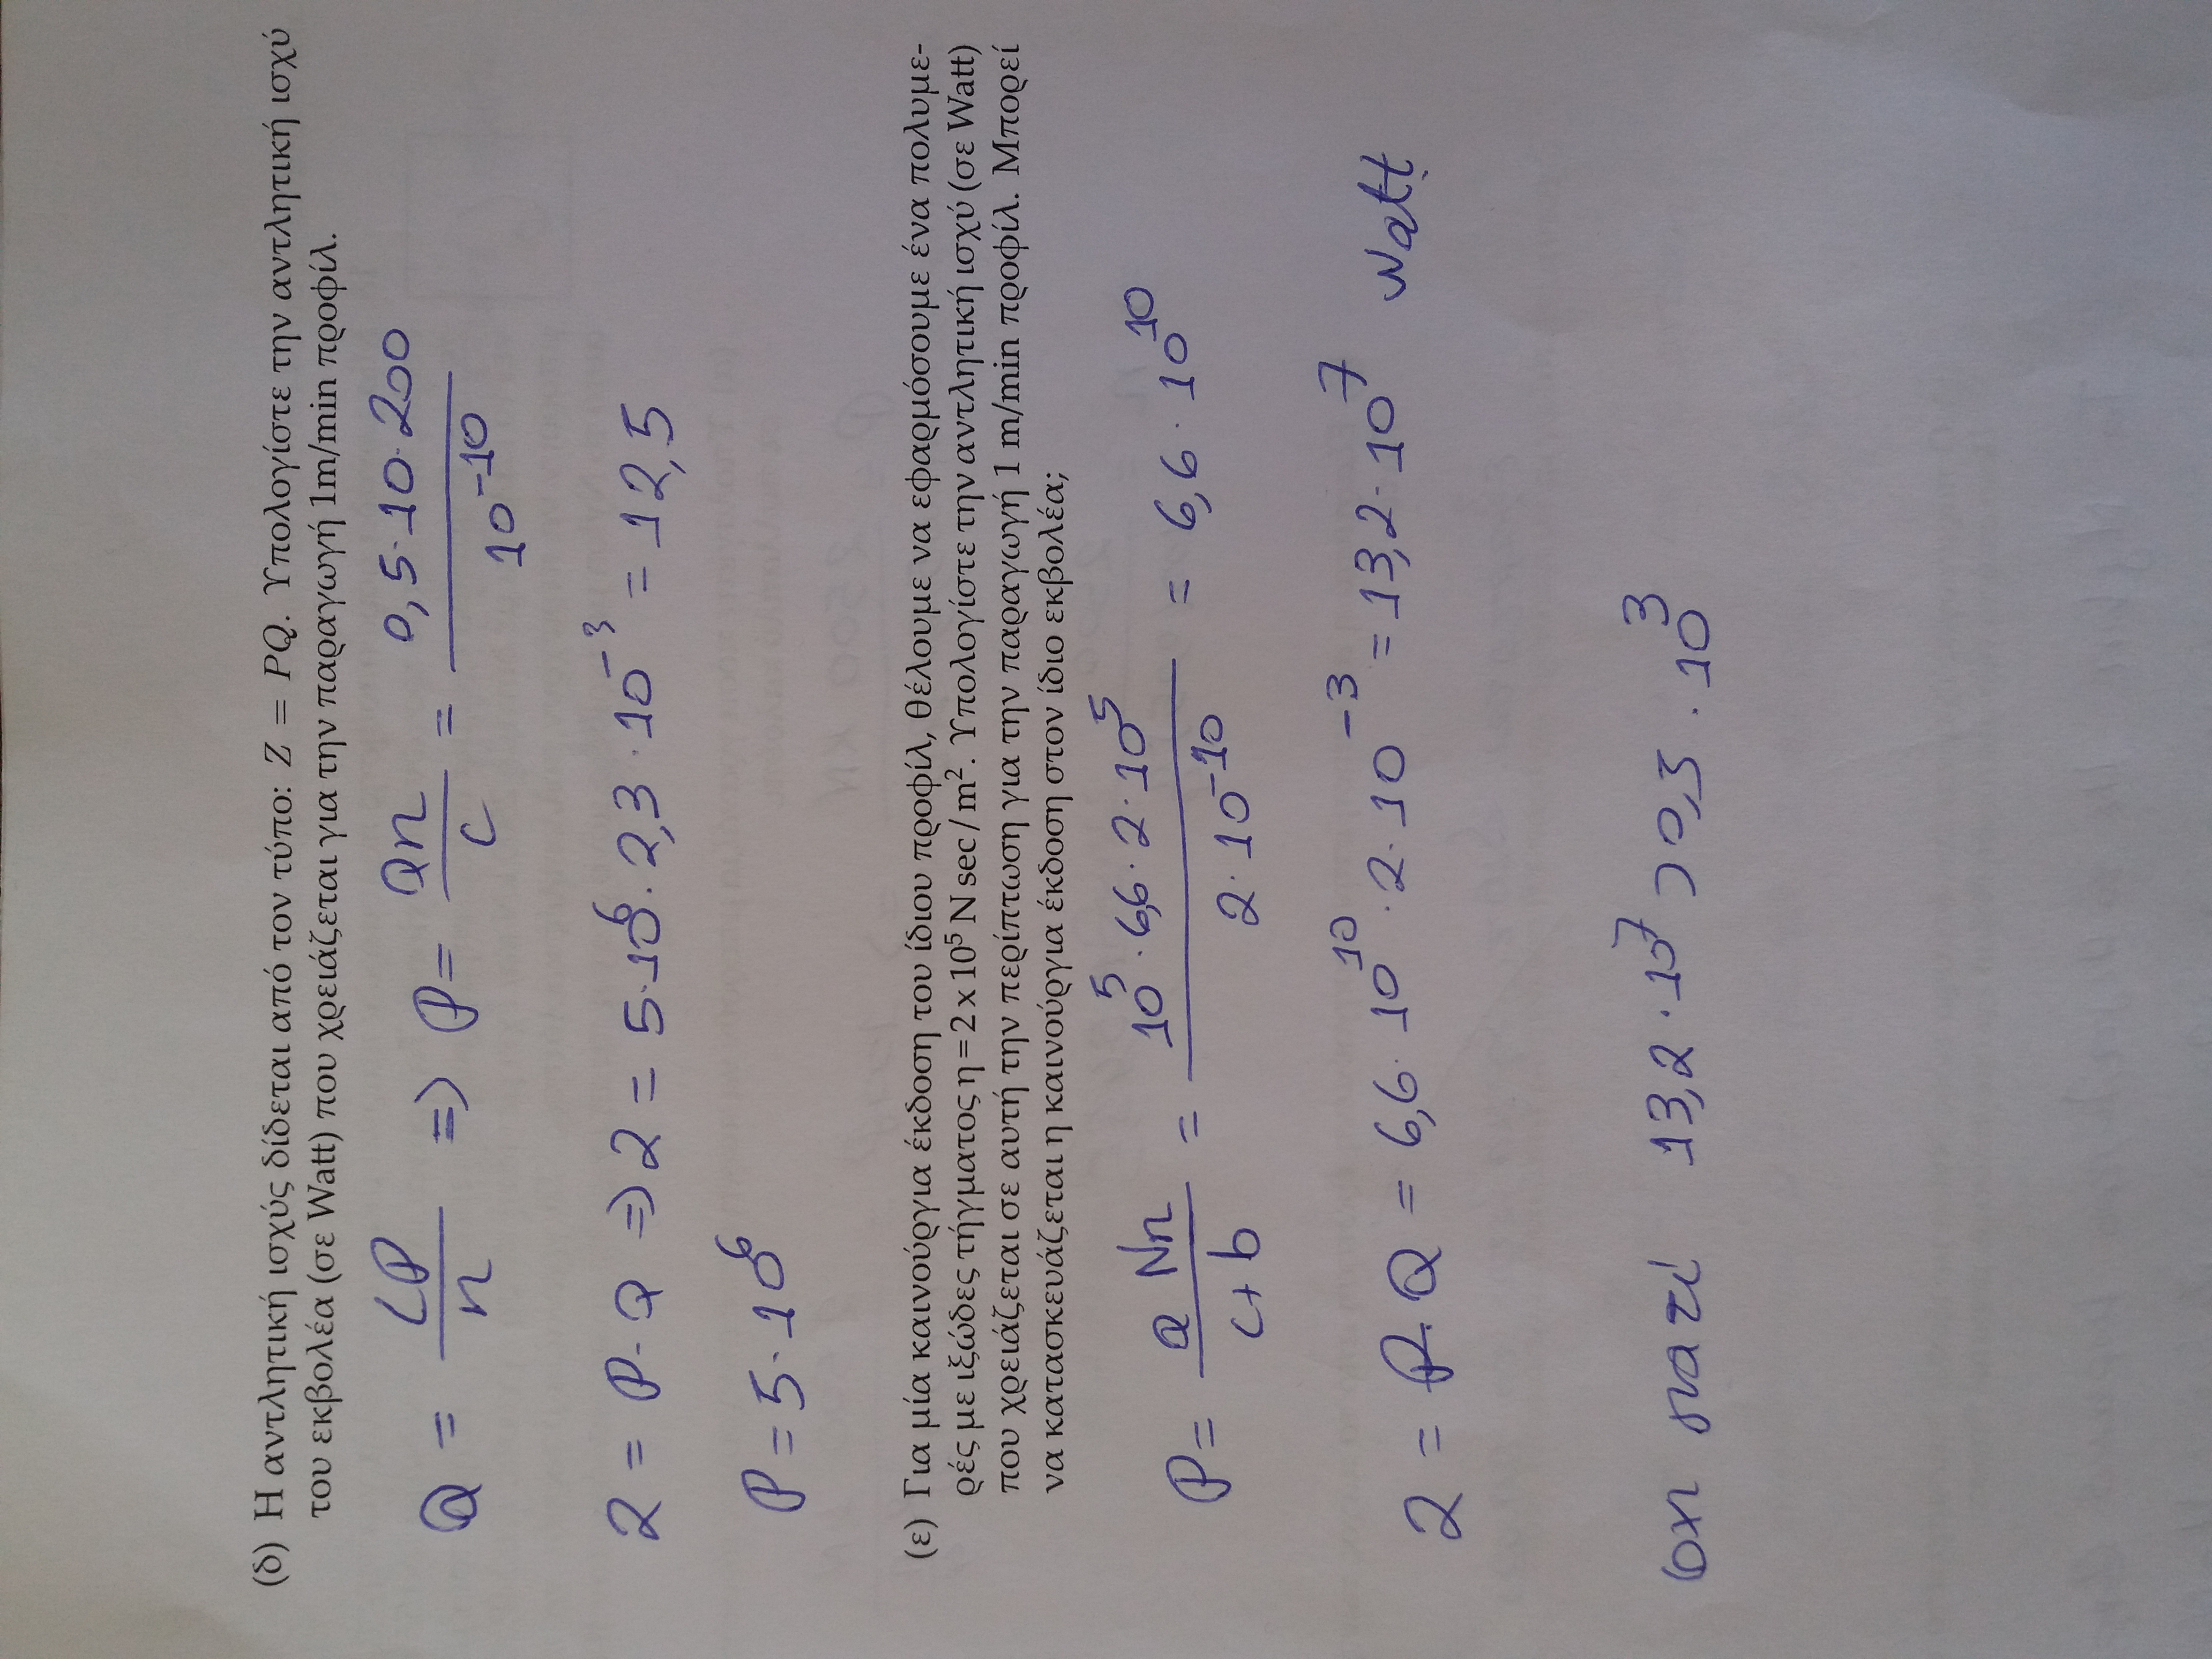 (δ) Η αντλητική ισχύς δίδεται από τον τύπο: Z = PQ. Υπολογίστε την αντλητική ισχύ
του εκβολέα (σε Watt) που χρειάζεται για την παραγωγή 1m/min προφίλ.
Q = CP/n => P = Qn/C = 0,5·10·200/10^-10
Z = P·Q => Z = 5·10^6·2,3·10^-3 = 12,5
P = 5·10^6
(ε) Για μία καινούργια έκδοση του ίδιου προφίλ, θέλουμε να εφαρμόσουμε ένα πολυμε-
ρές με ιξώδες τήγματος η = 2 x 10^5 N sec / m². Υπολογίστε την αντλητική ισχύ (σε Watt)
που χρειάζεται σε αυτή την περίπτωση για την παραγωγή 1 m/min προφίλ. Μπορεί
να κατασκευάζεται η καινούργια έκδοση στον ίδιο εκβολέα;
P = a Nn/c+b = 10^5·6,6·2·10^5/2·10^-10 = 6,6·10^10
Z = P·Q = 6,6·10^10·2·10^-3 = 13,2·10^7 Watt
οχι γιατί 13,2·10^7 > 0,5·10^3